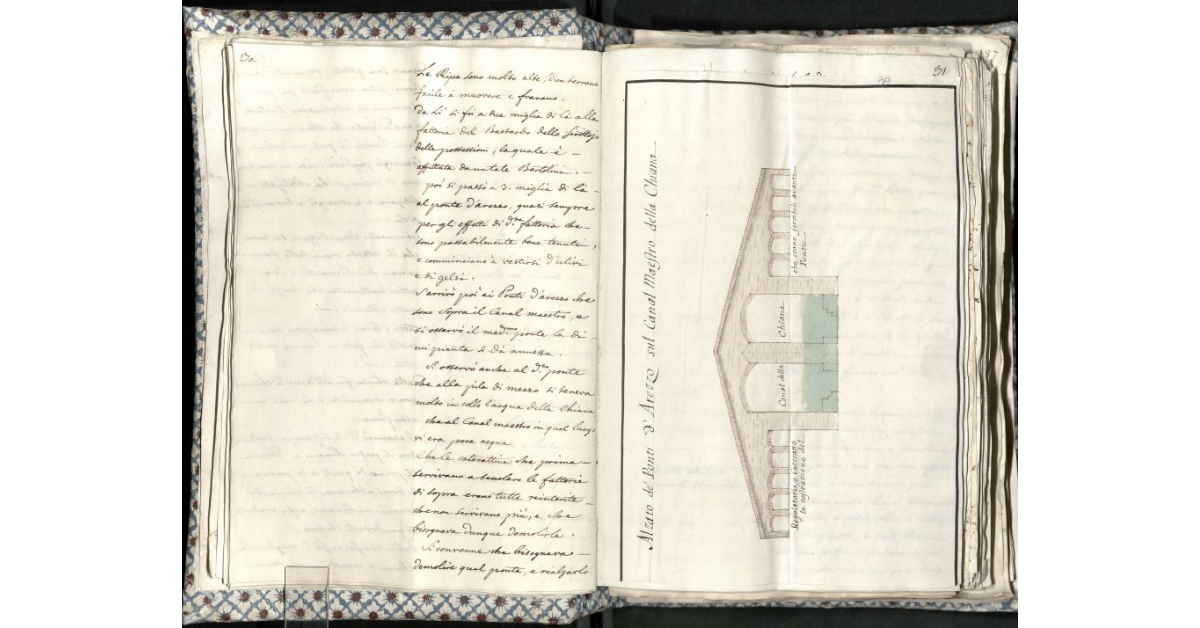 30.
Le Ripe sono molto alte, d'un terreno
facile à muovere e franano.
Da lì si fù a due miglia di là alla
fattoria del Bastardo dello Scrittojo
delle possessioni, la quale è –
affittata da un tale Bartolini, –
poi si passò a 3. miglia di là –
al ponte d'arezzo, quasi sempre
per gli effetti di d.ta fattoria che –
sono passabilmente bene tenuti,
e comminciano à vestirsi d'ulivi
e di gelsi.
S'arrivò poi ai Ponti d'arezzo che
sono sopra il Canal maestro, e
si osservò il med.mo ponte la di
cui pianta è quà annessa.
Si osservò anche al d.to ponte
che alla pila di mezzo si teneva
molto in collo l'acqua della Chiana
che al Canal maestro in quel luogo
vi era poca acqua
Che le caterattine che prima –
servivano a scolare le fattorie
di sopra erano tutte reinterrite –
che non servivano più, e che
bisognava dunque demolirle.
Si convenne che bisognava –
demolire quel ponte, e rialzarlo
187
31
Alzato de' Ponti d'Arezzo sul Canal Maestro della Chiana
che erano servibili avanti
Ponti
Canal della Chiana
Regolatorio o Cateratte
la costruzione dei